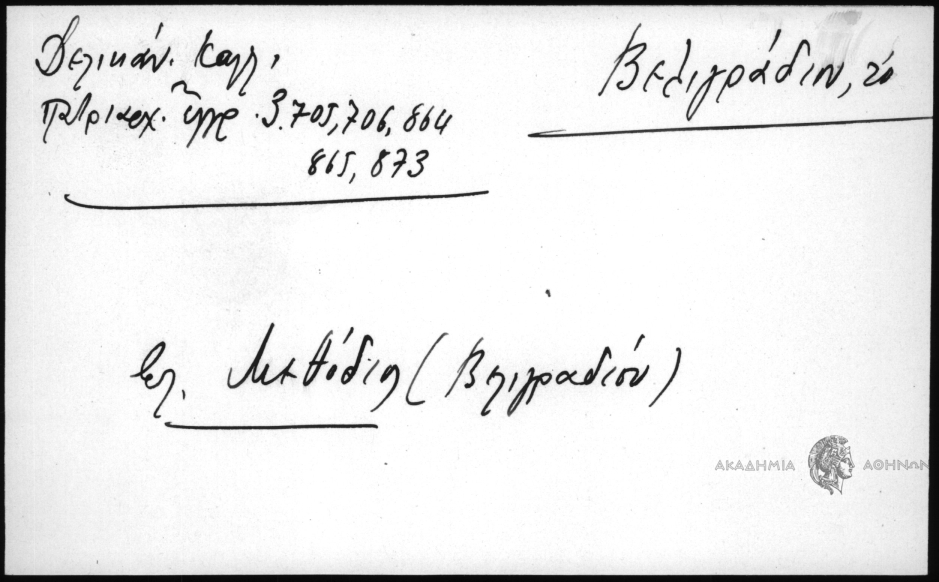 Δελικάν. Καλλ.
Πατριαρχ. ἔγγρ. 3.705, 706, 864
865, 873
Βελιγράδιον, τό
Βλ. Μεθόδιος (Βελιγραδίου)
ΑΚΑΔΗΜΙΑ ΑΘΗΝΩΝ